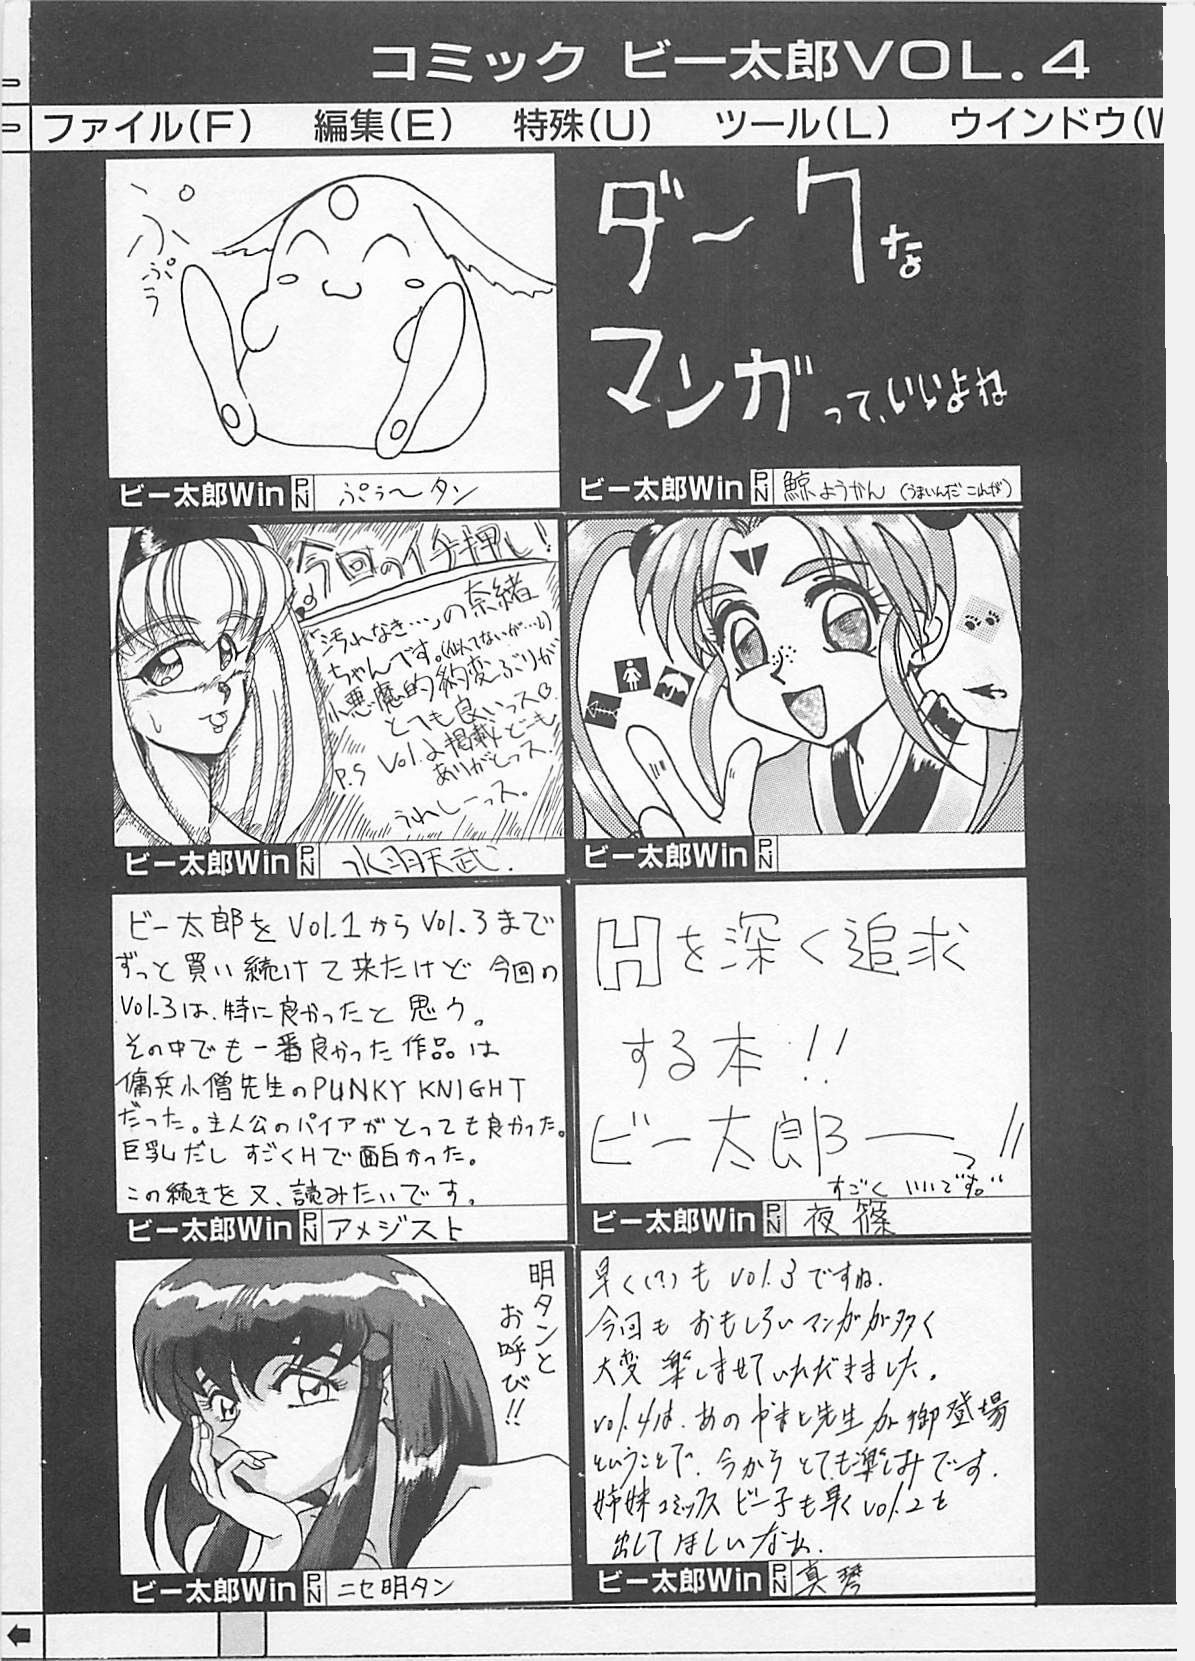 コミック ビー太郎VOL.4
ファイル(F) 編集(E) 特殊(U) ツール(L) ウインドウ(W
ぷ
ぷぅ
ビー太郎Win PN ぷぅ〜タン
ダークな
マンガって、いいよね
ビー太郎Win PN 鯨ようかん (うまいんだこれが)
今回のイチ押し!
「汚れなき…」の奈緒
ちゃんです。(似てないが…)
小悪魔的豹変ぶりが
とても良いっス。
P.S Vol.2掲載ども
ありがとっス。
うれしーっス。
ビー太郎Win PN 水羽天武.
ビー太郎Win PN
ビー太郎を Vol.1から Vol.3まで
ずっと買い続けて来たけど 今回の
Vol.3は、特に良かったと思う。
その中でも一番良かった作品は
傭兵小僧先生のPUNKY KNIGHT
だった。主人公のパイアがとっても良かった。
巨乳だし すごくHで面白かった。
この続きを又、読みたいです。
ビー太郎Win PN アメジスト
Hを深く追求
する本!!
ビー太郎ーーっ!!
すごく いいです。"
ビー太郎Win PN 夜篠
明タンと
お呼び!!
ビー太郎Win PN ニセ明タン
早く(?)も vol.3ですね.
今回も おもしろいマンガが多く
大変 楽しませていただきました。
vol.4は、あの やまと先生が御登場
ということで、今から とても楽しみです.
姉妹コミックス ビー子も早く vol.2を
出してほしいなぁ.
ビー太郎Win PN 真琴